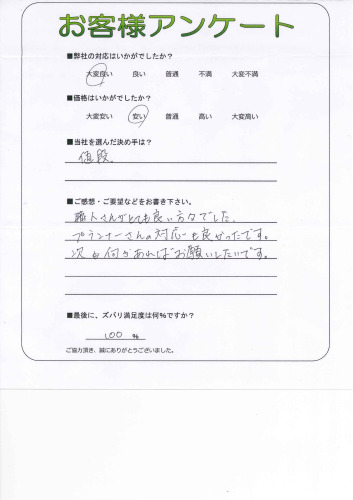 お客様アンケート
■弊社の対応はいかがでしたか？
大変良い 良い 普通 不満 大変不満
■価格はいかがでしたか？
大変安い 安い 普通 高い 大変高い
■当社を選んだ決め手は？
値段。
■ご感想・ご要望などをお書き下さい。
職人さんがとても良い方々でした。
プランナーさんの対応も良かったです。
次も何かあればお願いしたいです。
■最後に、ズバリ満足度は何%ですか？
100 %
ご協力頂き、誠にありがとうございました。